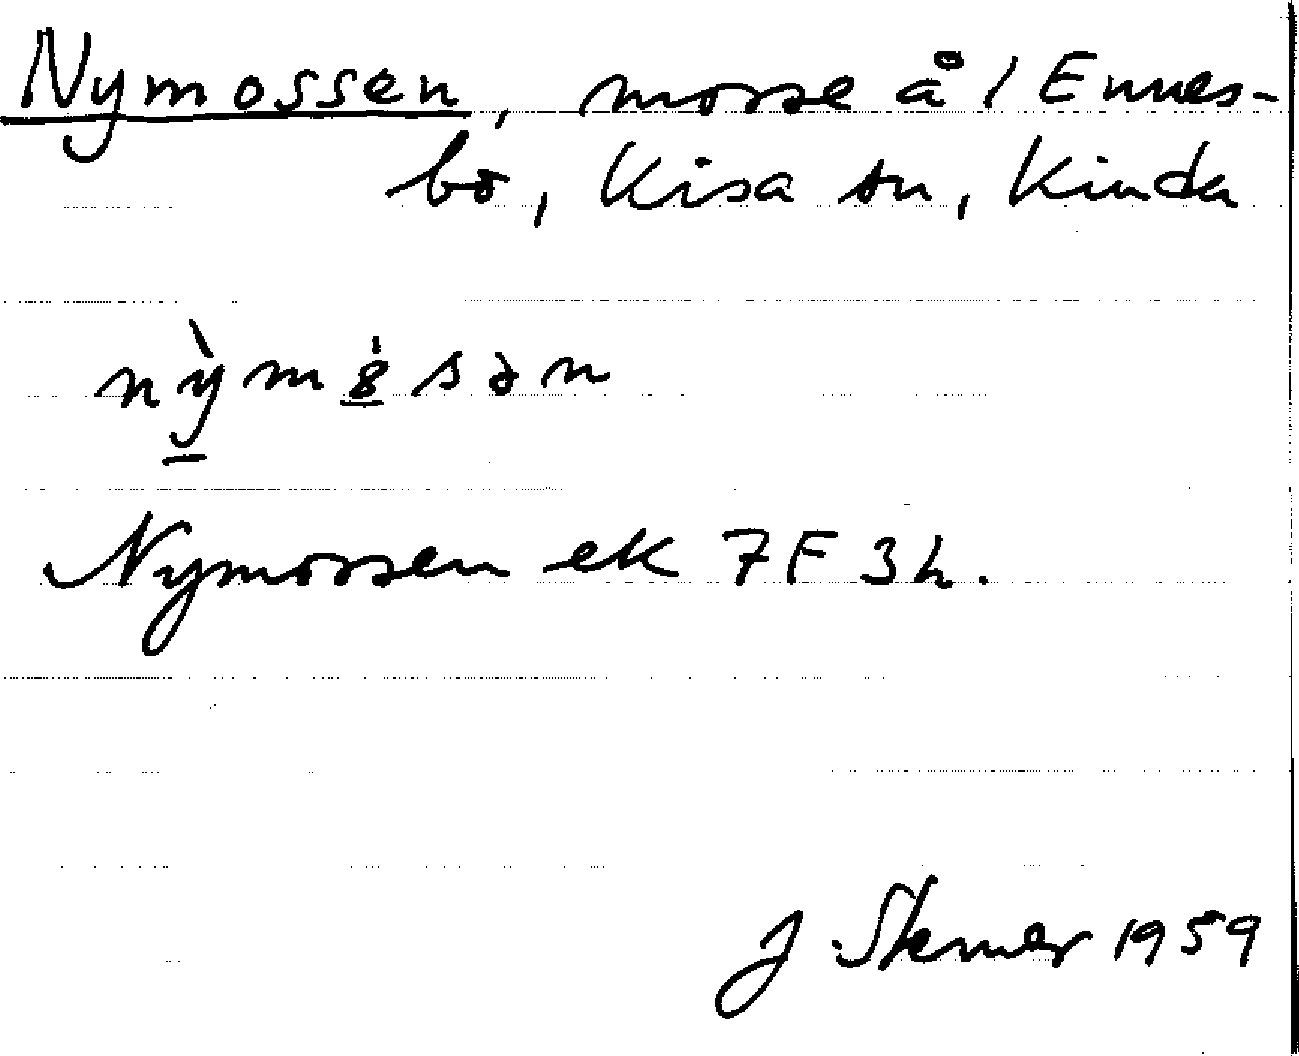 Nymossen, mosse å 1 Ennes-
bo, Kisa sn, Kinda
nỳmósən
Nymossen ek 7F 3h.
J. 1959